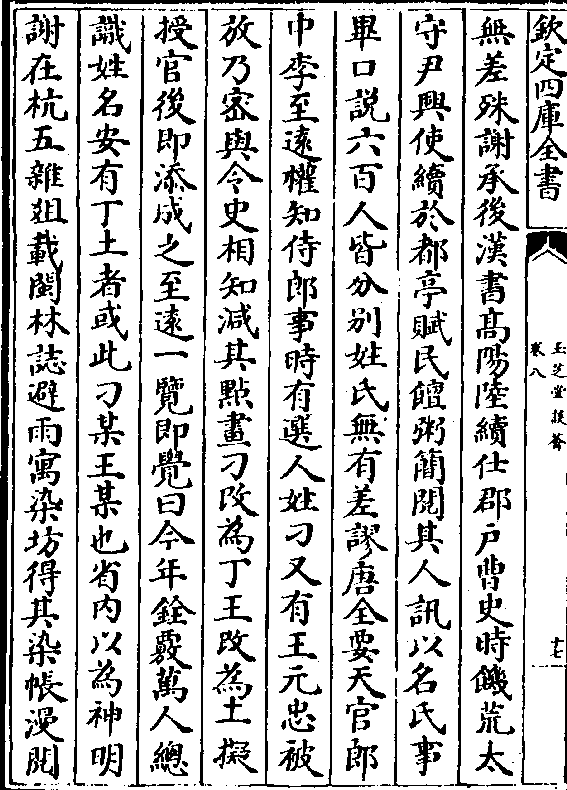 欽定四庫全書
玉芝堂談薈
卷八
十七
無差殊謝承後漢書高陽陸續仕郡戶曹史時饑荒太
守尹興使續於都亭賦民饘粥簡閲其人訊以名氏事
畢口説六百人皆分别姓氏無有差謬唐全要天官郎
中李至遠權知侍郎事時有選人姓刁又有王元忠被
放乃密與令史相知減其點畫刁改為丁王改為士擬
授官後即添成之至遠一覽即覺曰今年銓覈萬人總
識姓名安有丁土者或此刁某王某也省内以為神明
謝在杭五雜爼載閩林誌避雨寓染坊得其染帳漫閲